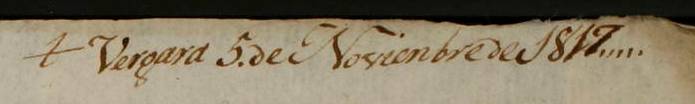 + Vergara 5. de Novienbre de 1817.....